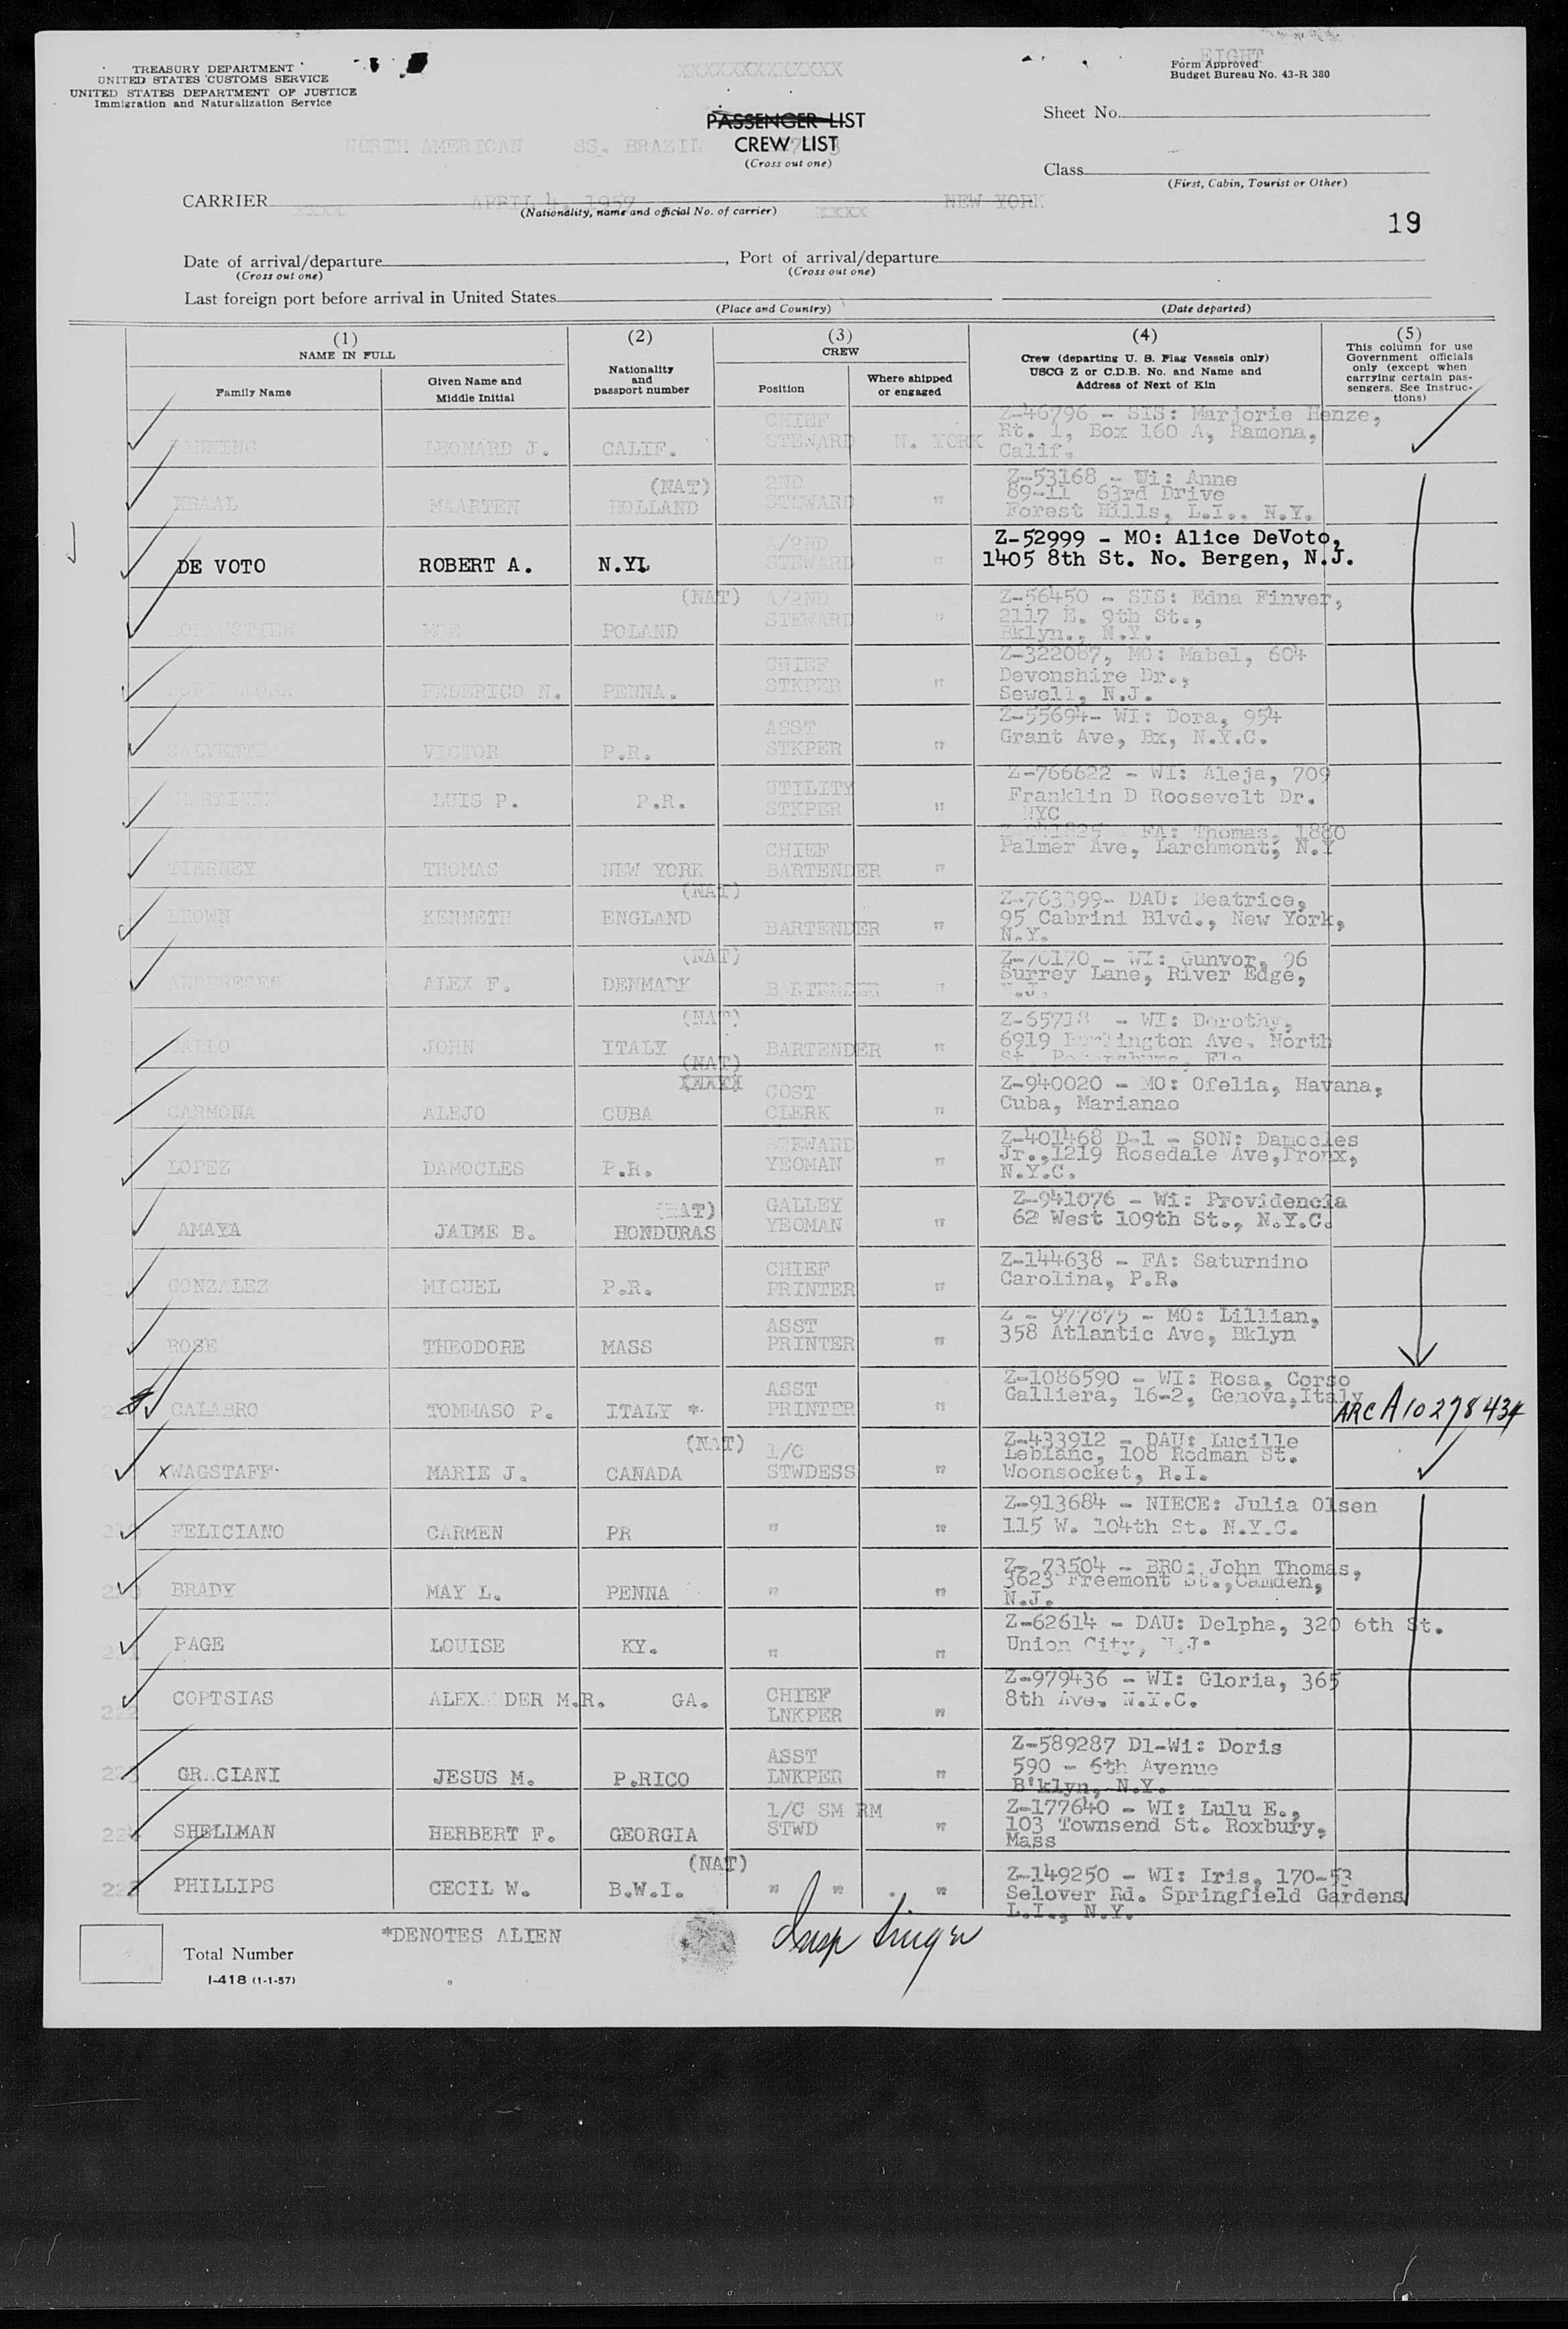 TREASURY DEPARTMENT
UNITED STATES CUSTOMS SERVICE
UNITED STATES DEPARTMENT OF JUSTICE
Immigration and Naturalization Service
XXXXXXXXXXXXXX
EIGHT
Form Approved
Budget Bureau No. 43-R 380
PASSENGER LIST
CREW LIST
(Cross out one)
Sheet No.
NORTH AMERICAN SS. BRAZIL
Class
(First, Cabin, Tourist or Other)
CARRIER
APRIL 4, 1957
NEW YORK
XXXX
(Nationality, name and official No. of carrier)
XXXX
19
Date of arrival/departure , Port of arrival/departure
(Cross out one) (Cross out one)
Last foreign port before arrival in United States
(Place and Country) (Date departed)
(1)
NAME IN FULL
Family Name
Given Name and
Middle Initial
(2)
Nationality
and
passport number
(3)
CREW
Position
Where shipped
or engaged
(4)
Crew (departing U. S. Flag Vessels only)
USCG Z or C.D.B. No. and Name and
Address of Next of Kin
(5)
This column for use
Government officials
only (except when
carrying certain pas-
sengers. See Instruc-
tions)
LEONARD J. CALIF. CHIEF STEWARD N. YORK Z-46796 - SIS: Marjorie Henze,
Rt. 1, Box 160 A, Ramona,
Calif.
KRAAL MAARTEN (NAT) HOLLAND 2ND STEWARD " Z-53168 - Wi: Anne
89-11 63rd Drive
Forest Hills, L.I., N.Y.
DE VOTO ROBERT A. N.Y. A/2ND STEWARD " Z-52999 - MO: Alice DeVoto,
1405 8th St. No. Bergen, N.J.
MOE (NAT) POLAND A/2ND STEWARD " Z-56450 - SIS: Edna Finver,
2117 E. 9th St.,
Bklyn., N.Y.
FEDERICO N. PENNA. CHIEF STKPER " Z-322087, MO: Mabel, 604
Devonshire Dr.,
Sewell, N.J.
VICTOR P.R. ASST STKPER " Z-55694- WI: Dora, 954
Grant Ave, Bx, N.Y.C.
LUIS P. P.R. UTILITY STKPER " Z-766622 - WI: Aleja, 709
Franklin D Roosevelt Dr.
NYC
TIERNEY THOMAS NEW YORK CHIEF BARTENDER " FA: Thomas, 1880
Palmer Ave, Larchmont, N.Y
BROWN KENNETH (NAT) ENGLAND BARTENDER " Z-763399- DAU: Beatrice,
95 Cabrini Blvd., New York,
N.Y.
ANDERESEN ALEX F. (NAT) DENMARK BARTENDER " Z-70170 - WI: Gunvor, 96
Surrey Lane, River Edge,
N.J.
GALLO JOHN (NAT) ITALY BARTENDER " Z-65718 - WI: Dorothy,
6919 Burlington Ave. North
St. Petersburg, Fla
CARMONA ALEJO (NAT) XXXXX CUBA COST CLERK " Z-940020 - MO: Ofelia, Havana,
Cuba, Marianao
LOPEZ DAMOCLES P.R. STEWARD YEOMAN " Z-401468 D-1 - SON: Damocles
Jr.,1219 Rosedale Ave,Bronx,
N.Y.C.
AMAYA JAIME B. (NAT) HONDURAS GALLEY YEOMAN " Z-941076 - Wi: Providencia
62 West 109th St., N.Y.C.
GONZALEZ MIGUEL P.R. CHIEF PRINTER " Z-144638 - FA: Saturnino
Carolina, P.R.
ROSE THEODORE MASS ASST PRINTER " Z - 977875 - MO: Lillian,
358 Atlantic Ave, Bklyn
CALABRO TOMMASO P. ITALY * ASST PRINTER " Z-1086590 - WI: Rosa, Corso
Galliera, 16-2, Genova,Italy
ARC A10278434
x WAGSTAFF MARIE J. (NAT) CANADA 1/C STWDESS " Z-433912 - DAU: Lucille
Leblanc, 108 Rodman St.
Woonsocket, R.I.
FELICIANO CARMEN PR " " Z-913684 - NIECE: Julia Olsen
115 W. 104th St. N.Y.C.
BRADY MAY L. PENNA " " Z- 73504 - BRO: John Thomas,
3623 Freemont St.,Camden,
N.J.
PAGE LOUISE KY. " " Z-62614 - DAU: Delpha, 320 6th St.
Union City, N.J.
222 COPTSIAS ALEX DER M.R. GA. CHIEF LNKPER " Z-979436 - WI: Gloria, 365
8th Ave. N.Y.C.
223 GR CIANI JESUS M. P.RICO ASST LNKPER " Z-589287 D1-Wi: Doris
590 - 6th Avenue
B'klyn, N.Y.
224 SHELLMAN HERBERT F. GEORGIA 1/C SM RM STWD " Z-177640 - WI: Lulu E.,
103 Townsend St. Roxbury,
Mass
225 PHILLIPS CECIL W. (NAT) B.W.I. " " " Z-149250 - WI: Iris, 170-53
Selover Rd. Springfield Gardens
L.I., N.Y.
*DENOTES ALIEN
Insp
Total Number
I-418 (1-1-57)